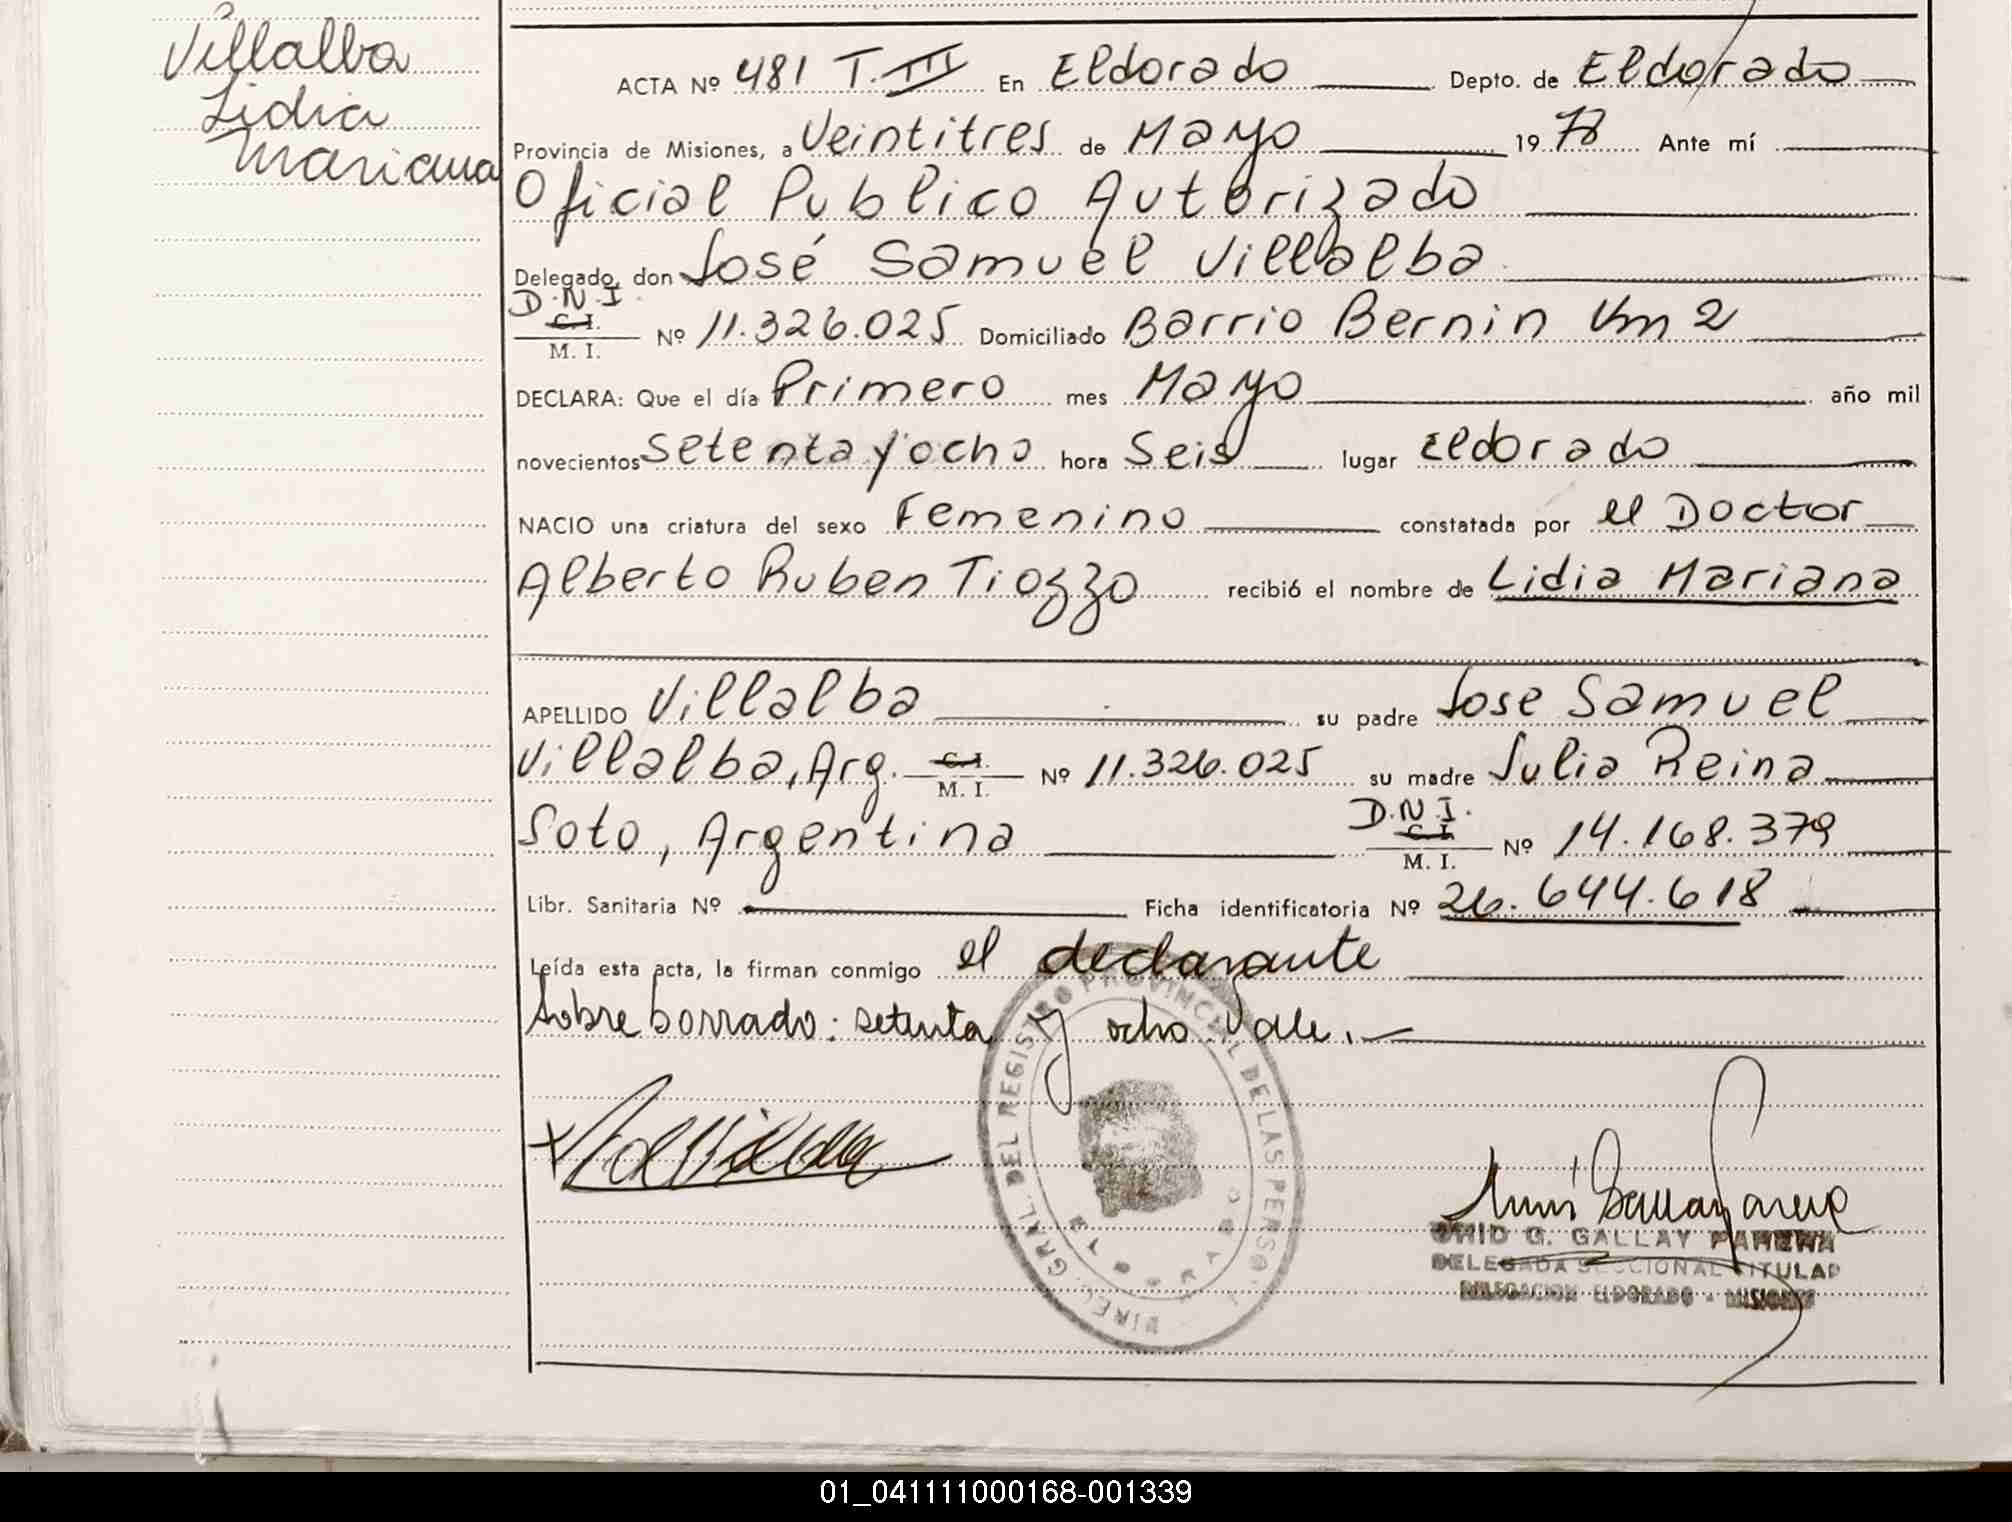 Villalba
Lidia
Mariana
ACTA Nº 481 T. III En Eldorado Depto. de Eldorado
Provincia de Misiones, a Veintitres de Mayo 1978 Ante mí
Oficial Publico Autorizado
Delegado, don José Samuel Villalba
D.N.I
C. I.
M. I. Nº 11.326.025 Domiciliado Barrio Bernin Km 2
DECLARA: Que el día Primero mes Mayo año mil
novecientos setenta y ocho hora Seis lugar Eldorado
NACIO una criatura del sexo Femenino constatada por el Doctor
Alberto Ruben Tiozzo recibió el nombre de Lidia Mariana
APELLIDO Villalba su padre Jose Samuel
Villalba, Arg. C. I. M. I. Nº 11.326.025 su madre Julia Reina
Soto, Argentina D.N.I. C. I. M. I. Nº 14.168.379
Libr. Sanitaria Nº Ficha identificatoria Nº 26.644.618
Leída esta acta, la firman conmigo el declarante
Sobre borrado: setenta y ocho Vale.
DIREC. GRAL. DEL REGISTRO PROVINCIAL DE LAS PERSO
ELDORADO
G. GALLAY PARERA
DELEGADA SECCIONAL TITULAR
DELEGACION ELDORADO - MISIONES
01_041111000168-001339